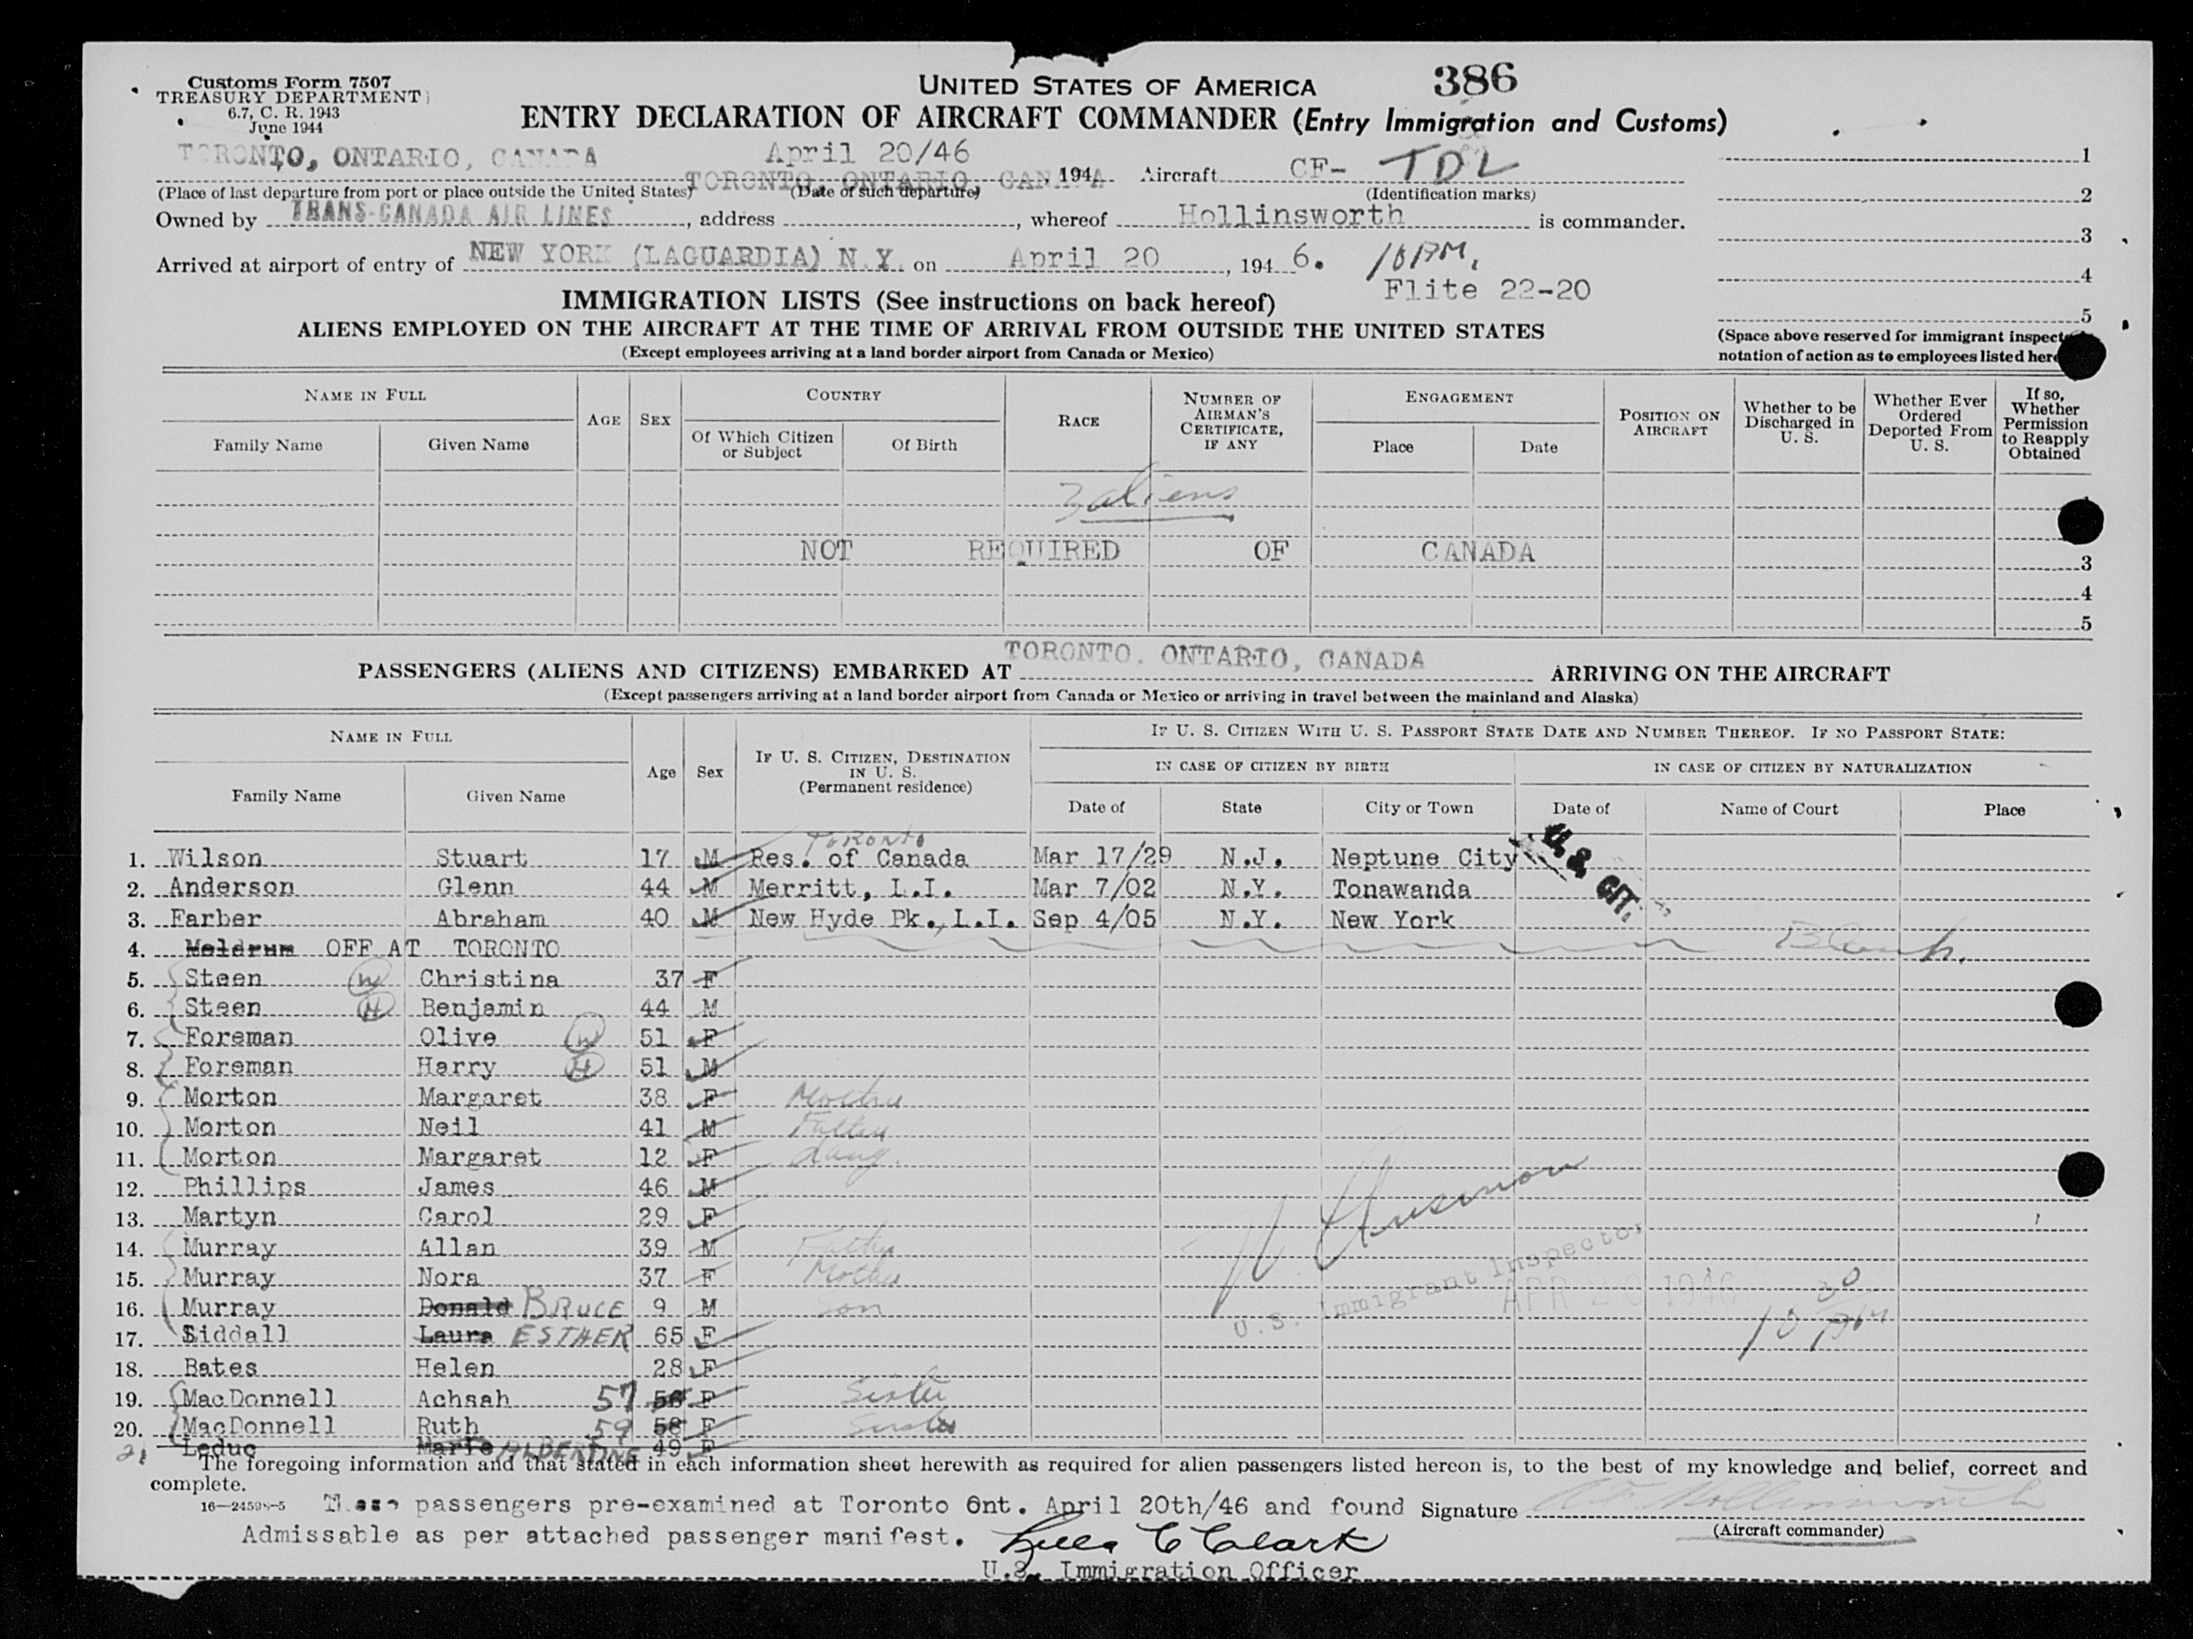 Customs Form 7507
TREASURY DEPARTMENT
6.7, C. R. 1943
June 1944
UNITED STATES OF AMERICA
386
ENTRY DECLARATION OF AIRCRAFT COMMANDER (Entry Immigration and Customs)
TORONTO, ONTARIO, CANADA April 20/46 , 194 Aircraft CF- TDL
TORONTO, ONTARIO, CANADA
(Place of last departure from port or place outside the United States) (Date of such departure) (Identification marks)
Owned by TRANS-CANADA AIR LINES , address , whereof Hollinsworth is commander.
Arrived at airport of entry of NEW YORK (LAGUARDIA) N.Y. on April 20 , 194 6. 10 PM.
Flite 22-20
1
2
3
4
5
IMMIGRATION LISTS (See instructions on back hereof)
ALIENS EMPLOYED ON THE AIRCRAFT AT THE TIME OF ARRIVAL FROM OUTSIDE THE UNITED STATES
(Except employees arriving at a land border airport from Canada or Mexico)
(Space above reserved for immigrant
notation of action as to employees listed
NAME IN FULL
Family Name Given Name
AGE SEX
COUNTRY
Of Which Citizen or Subject Of Birth
RACE
NUMBER OF AIRMAN'S CERTIFICATE, IF ANY
ENGAGEMENT
Place Date
POSITION ON AIRCRAFT
Whether to be Discharged in U. S.
Whether Ever Ordered Deported From U. S.
If so, Whether Permission to Reapply Obtained
3 aliens
NOT REQUIRED OF CANADA
3
4
5
PASSENGERS (ALIENS AND CITIZENS) EMBARKED AT TORONTO, ONTARIO, CANADA ARRIVING ON THE AIRCRAFT
(Except passengers arriving at a land border airport from Canada or Mexico or arriving in travel between the mainland and Alaska)
NAME IN FULL
Family Name Given Name
Age Sex
IF U. S. CITIZEN, DESTINATION IN U. S.
(Permanent residence)
IF U. S. CITIZEN WITH U. S. PASSPORT STATE DATE AND NUMBER THEREOF. IF NO PASSPORT STATE:
IN CASE OF CITIZEN BY BIRTH IN CASE OF CITIZEN BY NATURALIZATION
Date of State City or Town Date of Name of Court Place
TORONTO
1. Wilson Stuart 17 M Res. of Canada Mar 17/29 N.J. Neptune City
U.S. CIT.
2. Anderson Glenn 44 M Merritt, L.I. Mar 7/02 N.Y. Tonawanda
3. Farber Abraham 40 M New Hyde Pk., L.I. Sep 4/05 N.Y. New York
4. Meldrum OFF AT TORONTO Blank.
5. Steen W Christina 37 F
6. Steen H Benjamin 44 M
7. Foreman Olive W 51 F
8. Foreman Harry H 51 M
9. Morton Margaret 38 F Mother
10. Morton Neil 41 M Father
11. Morton Margaret 12 F daug.
12. Phillips James 46 M
13. Martyn Carol 29 F
14. Murray Allan 39 M Father
15. Murray Nora 37 F Mother
16. Murray Donald BRUCE 9 M Son
17. Siddall Laura ESTHER 65 F
18. Bates Helen 28 F
19. MacDonnell Achsah 57 56 F Sister
20. MacDonnell Ruth 59 58 F Sister
21 Leduc Marie ALBERTINE 49 F
U. S. Immigrant Inspector
APR 20 1946
10 30 PM
The foregoing information and that stated in each information sheet herewith as required for alien passengers listed hereon is, to the best of my knowledge and belief, correct and
complete.
16—24598-5 These passengers pre-examined at Toronto Ont. April 20th/46 and found Signature
Admissable as per attached passenger manifest. (Aircraft commander)
C Clark
U.S. Immigration Officer